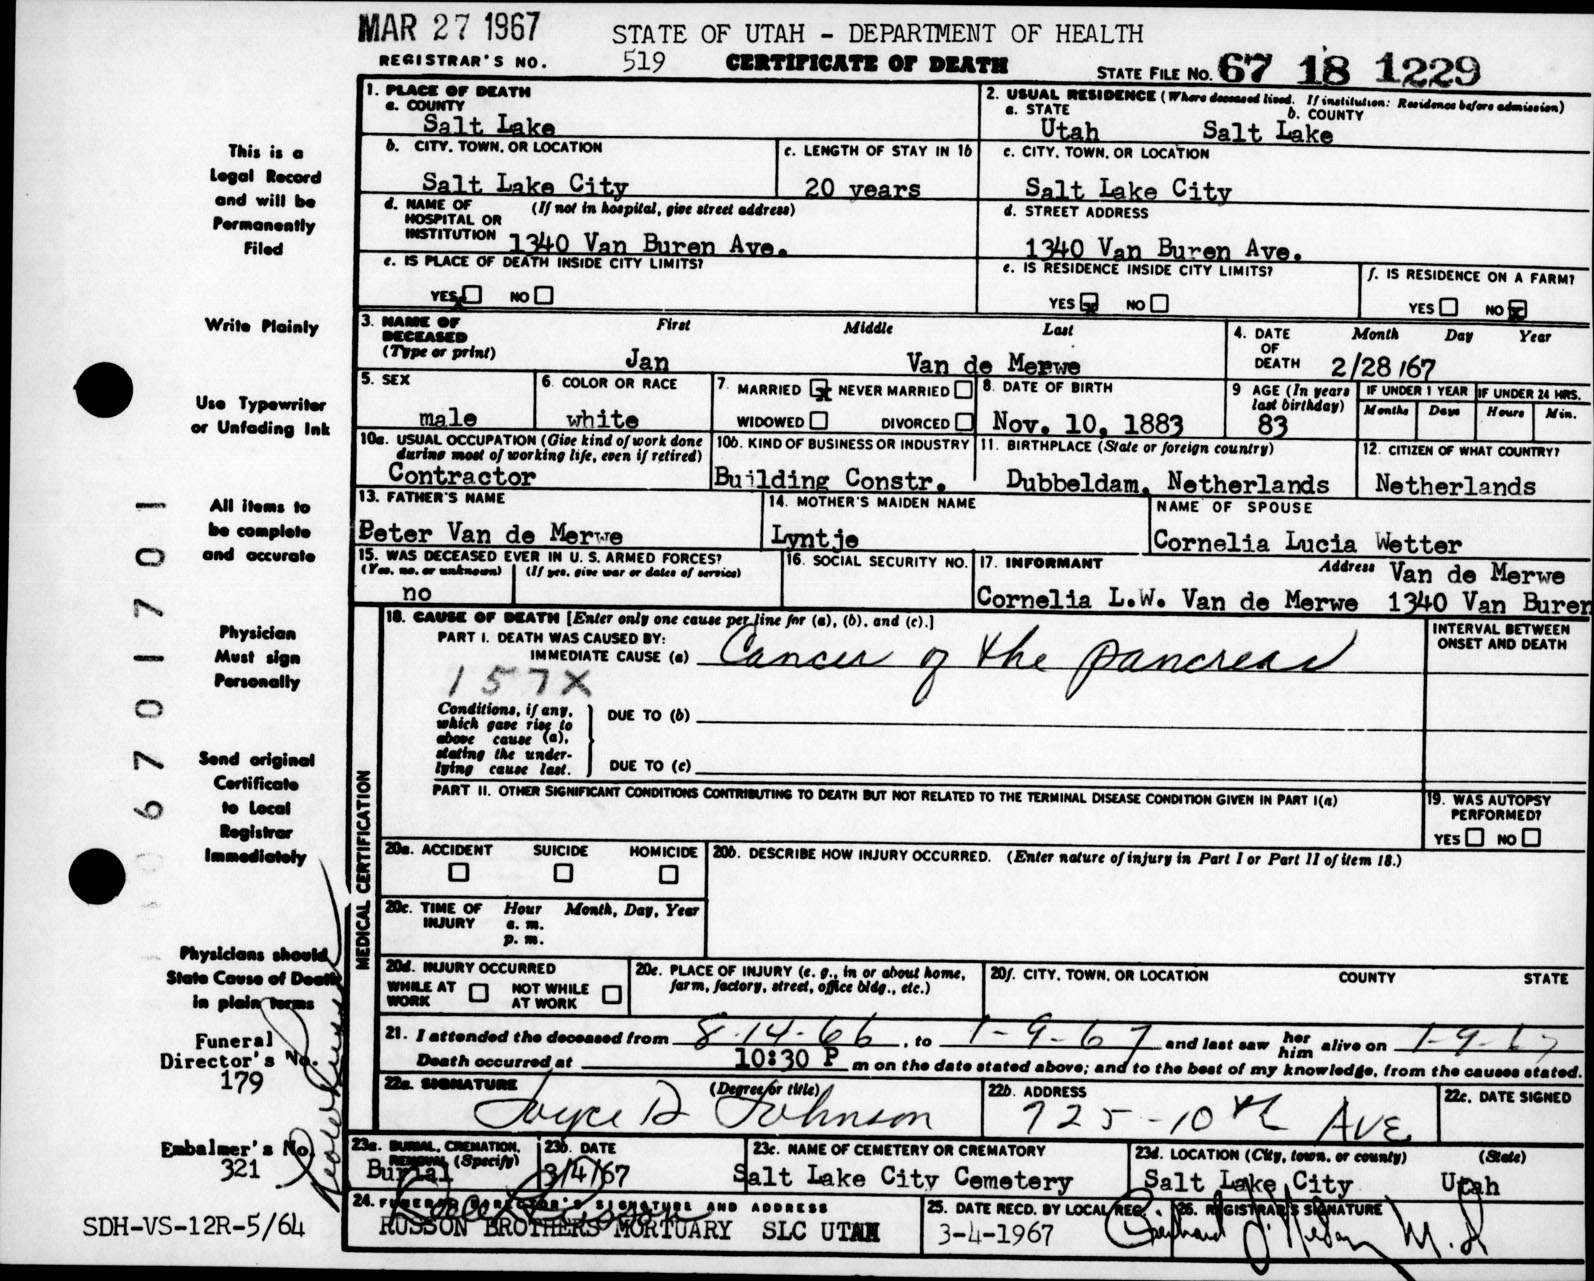 MAR 27 1967
STATE OF UTAH - DEPARTMENT OF HEALTH
REGISTRAR'S NO. 519 CERTIFICATE OF DEATH STATE FILE NO. 67 18 1229
This is a
Legal Record
and will be
Permanently
Filed
Write Plainly
Use Typewriter
or Unfading Ink
All items to
be complete
and accurate
Physician
Must sign
Personally
Send original
Certificate
to Local
Registrar
Immediately
Physicians should
State Cause of Death
in plain terms
Funeral
Director's No.
179
Embalmer's No.
321
SDH-VS-12R-5/64
6701701
1. PLACE OF DEATH
a. COUNTY
Salt Lake
2. USUAL RESIDENCE (Where deceased lived. If institution: Residence before admission)
a. STATE b. COUNTY
Utah Salt Lake
b. CITY, TOWN, OR LOCATION
Salt Lake City
c. LENGTH OF STAY IN 1b
20 years
c. CITY, TOWN, OR LOCATION
Salt Lake City
d. NAME OF (If not in hospital, give street address)
HOSPITAL OR
INSTITUTION 1340 Van Buren Ave.
d. STREET ADDRESS
1340 Van Buren Ave.
e. IS PLACE OF DEATH INSIDE CITY LIMITS?
YES x NO
e. IS RESIDENCE INSIDE CITY LIMITS?
YES x NO
f. IS RESIDENCE ON A FARM?
YES NO x
3. NAME OF First Middle Last
DECEASED
(Type or print)
Jan Van de Merwe
4. DATE Month Day Year
OF
DEATH 2/28/67
5. SEX
male
6. COLOR OR RACE
white
7. MARRIED x NEVER MARRIED
WIDOWED DIVORCED
8. DATE OF BIRTH
Nov. 10, 1883
9 AGE (In years
last birthday)
83
IF UNDER 1 YEAR IF UNDER 24 HRS.
Months Days Hours Min.
10a. USUAL OCCUPATION (Give kind of work done
during most of working life, even if retired)
Contractor
10b. KIND OF BUSINESS OR INDUSTRY
Building Constr.
11. BIRTHPLACE (State or foreign country)
Dubbeldam, Netherlands
12. CITIZEN OF WHAT COUNTRY?
Netherlands
13. FATHER'S NAME
Peter Van de Merwe
14. MOTHER'S MAIDEN NAME
Lyntje
NAME OF SPOUSE
Cornelia Lucia Wetter
15. WAS DECEASED EVER IN U. S. ARMED FORCES?
(Yes, no, or unknown) (If yes, give war or dates of service)
no
16. SOCIAL SECURITY NO.
17. INFORMANT Address Van de Merwe
Cornelia L.W. Van de Merwe 1340 Van Buren
MEDICAL CERTIFICATION
18. CAUSE OF DEATH [Enter only one cause per line for (a), (b), and (c).]
PART I. DEATH WAS CAUSED BY:
IMMEDIATE CAUSE (a) Cancer of the pancreas
157X
INTERVAL BETWEEN
ONSET AND DEATH
Conditions, if any,
which gave rise to
above cause (a),
stating the under-
lying cause last.
DUE TO (b)
DUE TO (c)
PART II. OTHER SIGNIFICANT CONDITIONS CONTRIBUTING TO DEATH BUT NOT RELATED TO THE TERMINAL DISEASE CONDITION GIVEN IN PART I(a)
19. WAS AUTOPSY
PERFORMED?
YES NO
20a. ACCIDENT SUICIDE HOMICIDE
20b. DESCRIBE HOW INJURY OCCURRED. (Enter nature of injury in Part I or Part II of item 18.)
20c. TIME OF Hour Month, Day, Year
INJURY a. m.
p. m.
20d. INJURY OCCURRED
WHILE AT WORK NOT WHILE AT WORK
20e. PLACE OF INJURY (e. g., in or about home,
farm, factory, street, office bldg., etc.)
20f. CITY, TOWN, OR LOCATION COUNTY STATE
21. I attended the deceased from 8-14-66, to 1-9-67 and last saw her him alive on 1-9-67
Death occurred at 10:30 P m on the date stated above; and to the best of my knowledge, from the causes stated.
22a. SIGNATURE (Degree or title)
Joyce D Johnson
22b. ADDRESS
725-10th AVE.
22c. DATE SIGNED
23a. BURIAL, CREMATION,
REMOVAL (Specify)
Burial
23b. DATE
3/4/67
23c. NAME OF CEMETERY OR CREMATORY
Salt Lake City Cemetery
23d. LOCATION (City, town, or county) (State)
Salt Lake City Utah
24. FUNERAL DIRECTOR'S SIGNATURE AND ADDRESS
RUSSON BROTHERS MORTUARY SLC UTAH
25. DATE RECD. BY LOCAL REG.
3-4-1967
26. REGISTRAR'S SIGNATURE